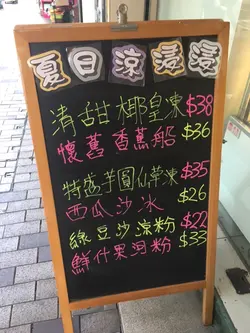 夏日涼浸浸
清甜椰皇凍 $38
懷舊香蕉船 $36
特盛芋圓仙草凍 $35
西瓜沙冰 $26
綠豆沙涼粉 $22
鮮什果河粉 $33